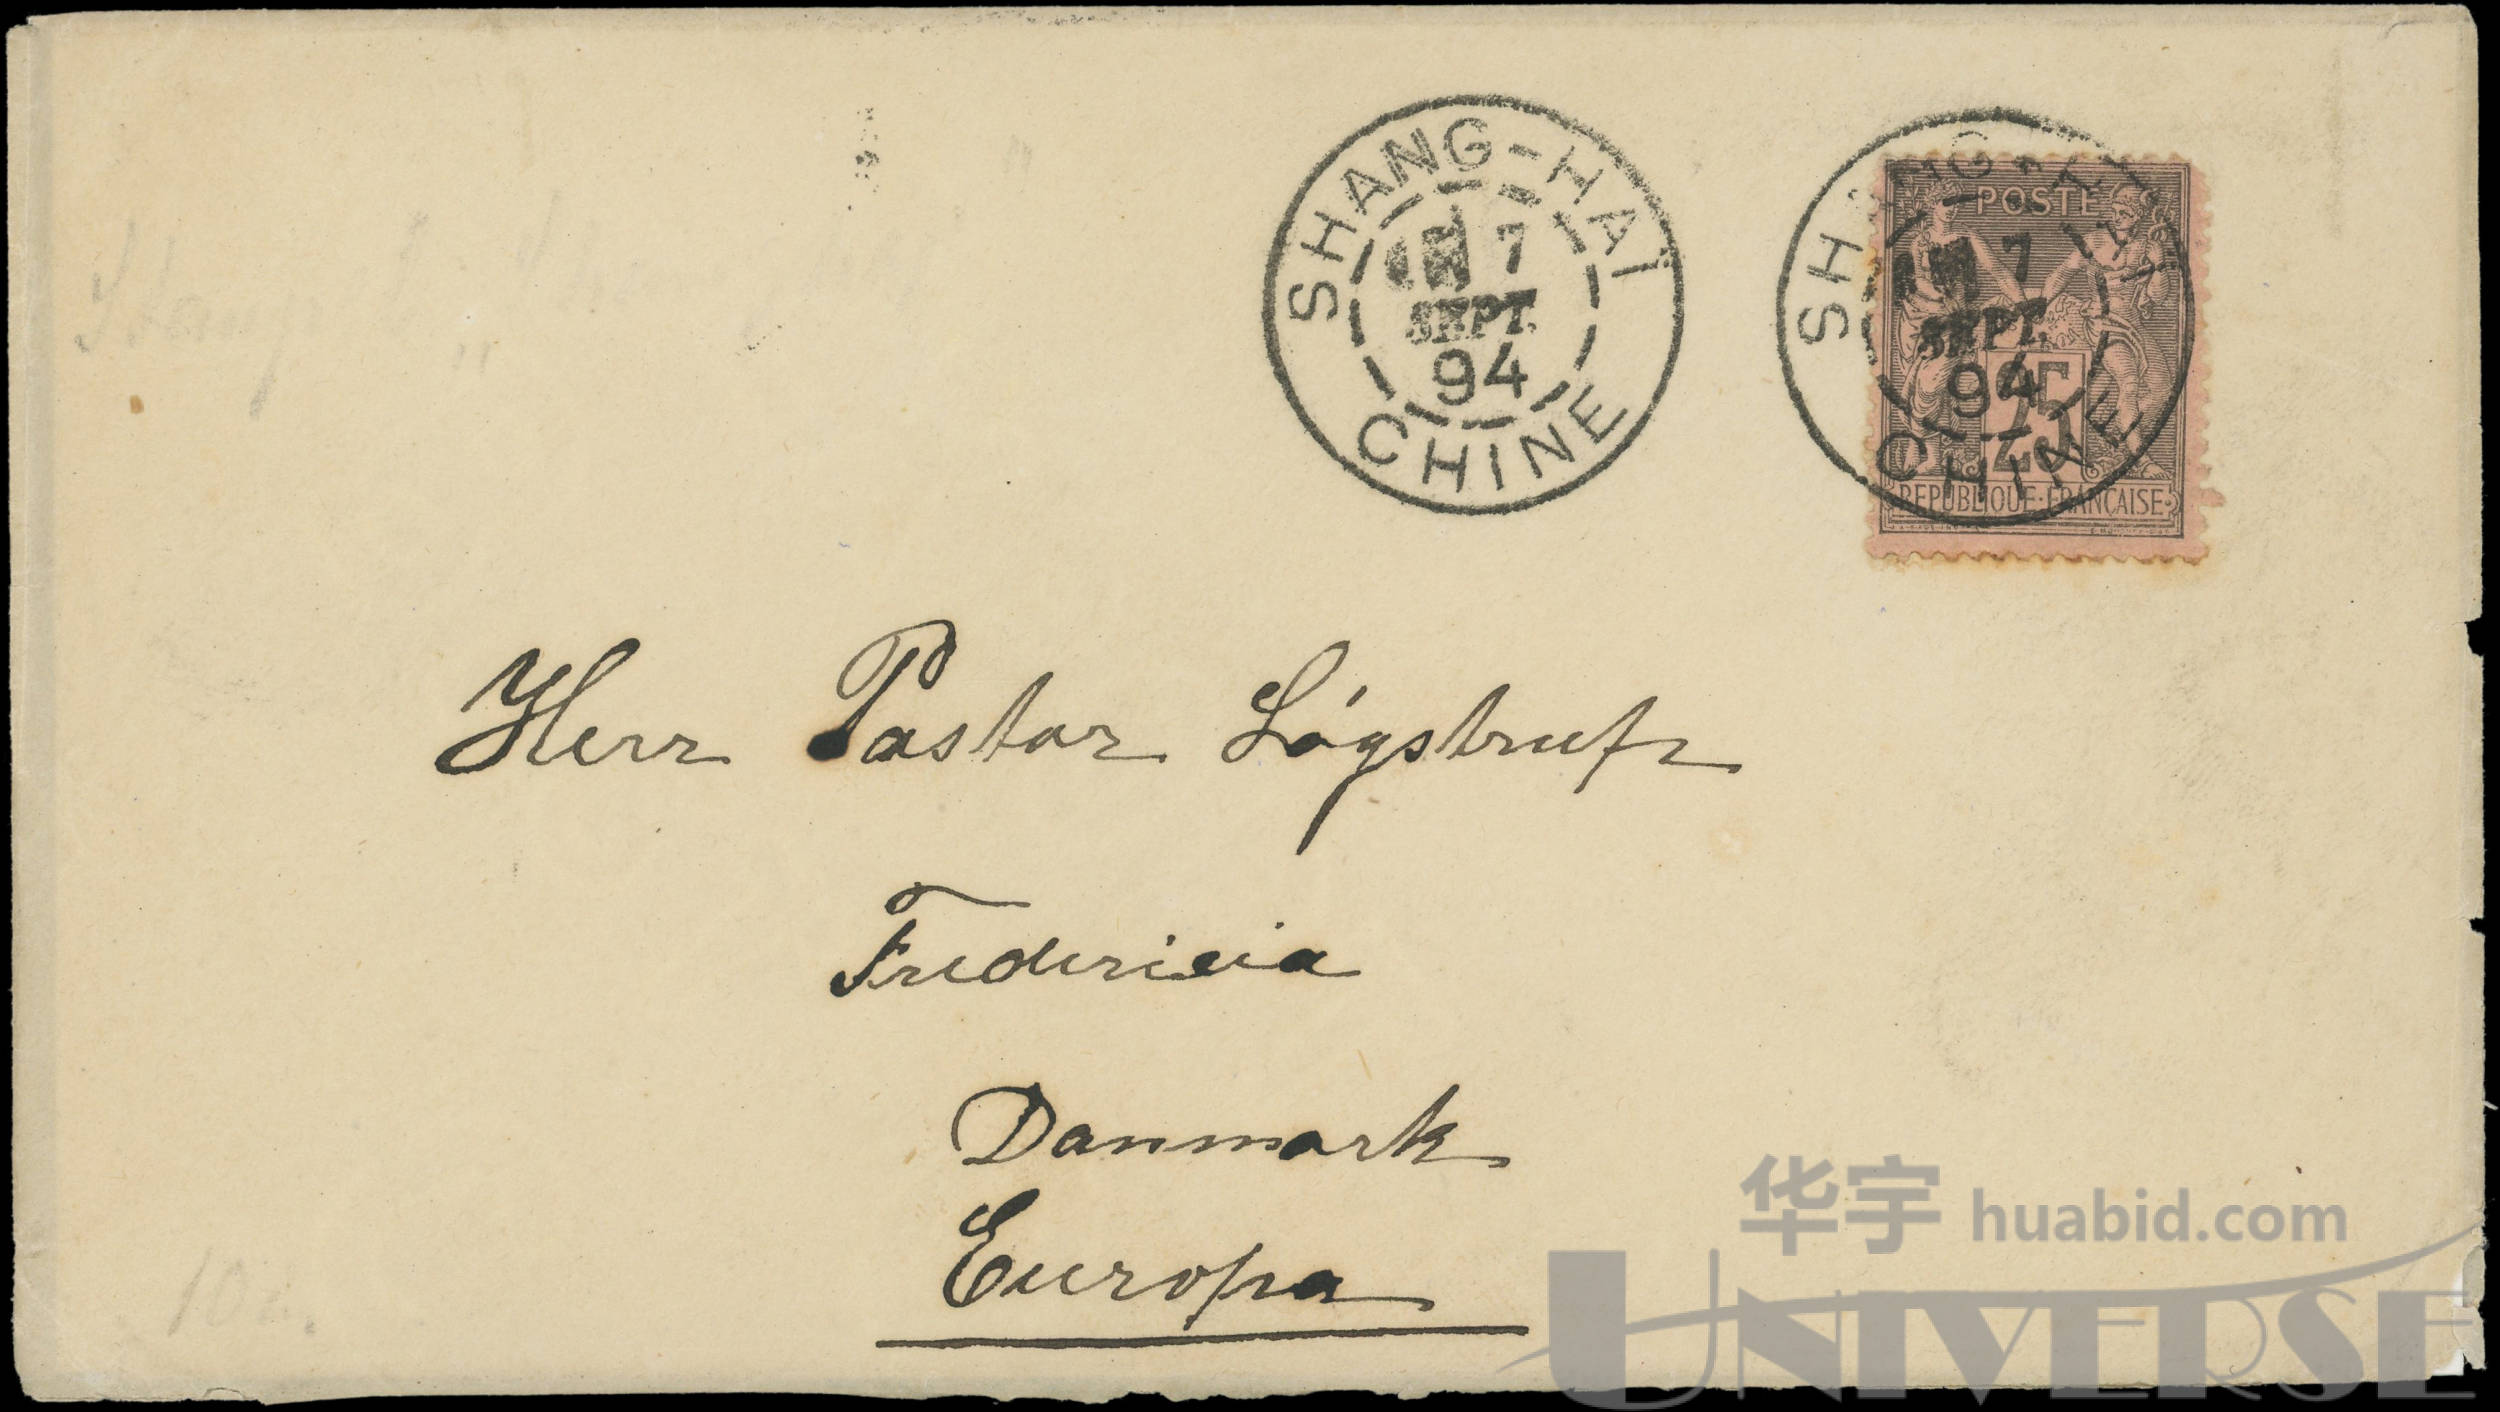 SHANG-HAÏ
7
SEPT.
94
CHINE
SHANG-HAÏ
7
SEPT.
94
CHINE
POSTE
25
REPUBLIQUE·FRANÇAISE
Herr Pastor Løgstrup
Fredericia
Danmark
Europa
华宇 huabid.com
UNIVERSE